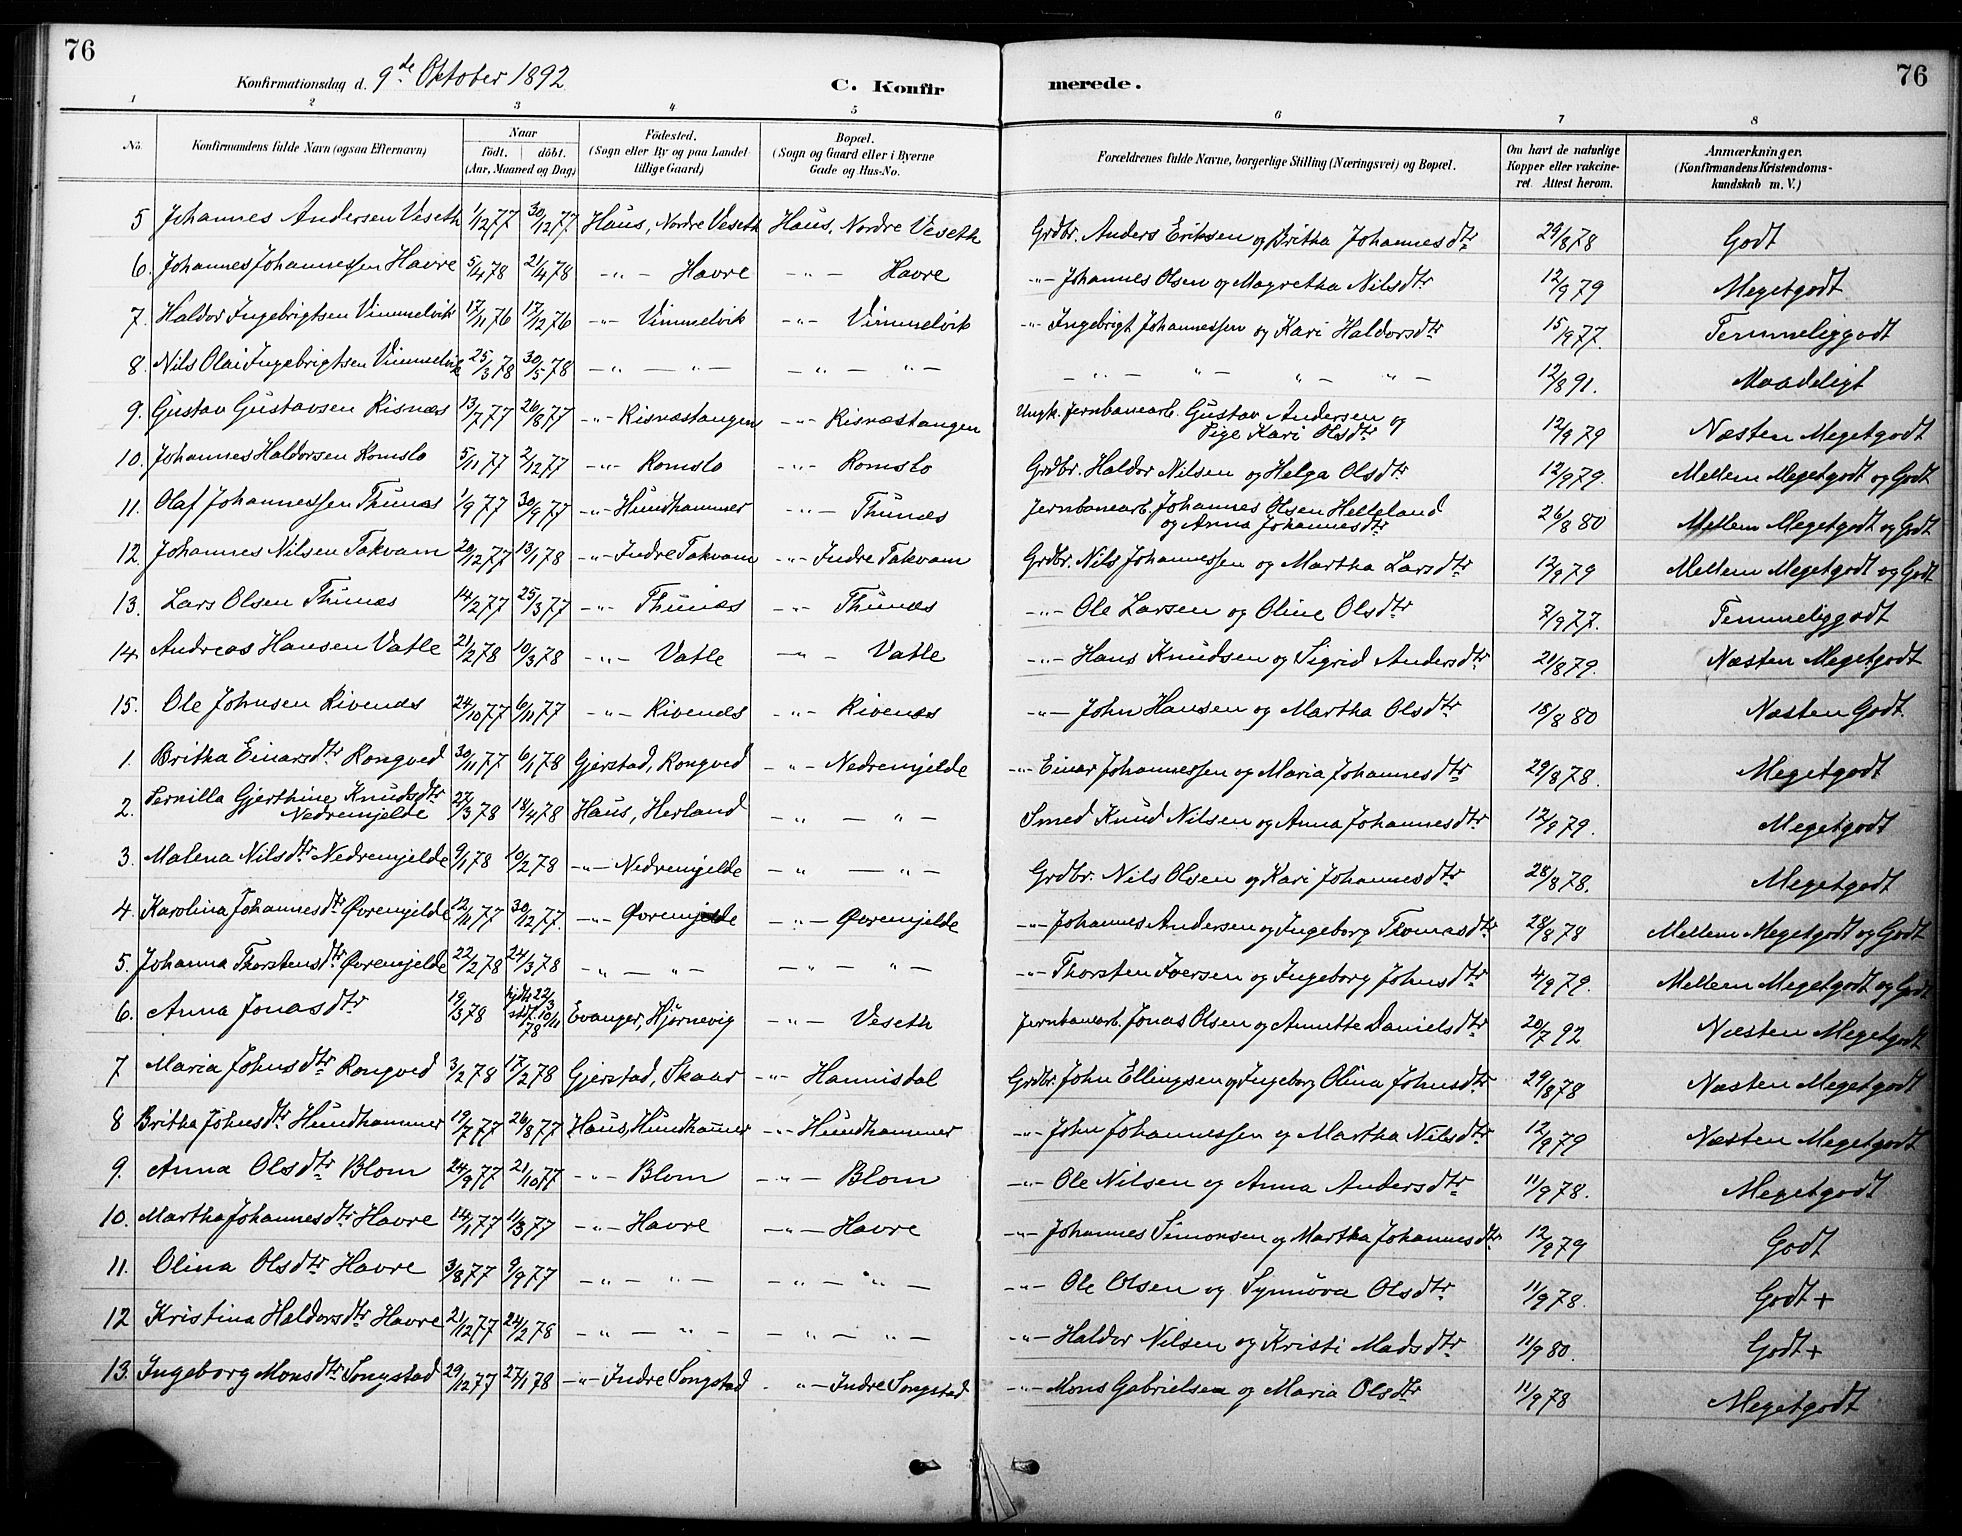 76
Konfirmationsdag d. 9de Oktober 1892
C. Konfir merede.
76
1 2 3 4 5 6 7 8
No. | Konfirmandens fulde Navn (ogsaa Efternavn) | Naar födt. döbt. (Aar, Maaned og Dag) | Födested. (Sogn eller By og paa Landet tillige Gaard) | Bopæl. (Sogn og Gaard eller i Byerne Gade og Hus-No. | Forældrenes fulde Navne, borgerlige Stilling (Næringsvei) og Bopæl. | Om havt de naturlige Kopper eller vakcineret. Attest herom. | Anmærkninger. (Konfirmandens Kristendomskundskab m. V.)
5 Johannes Andersen Veseth 1/12 77 30/12 77 Haus, Nordre Veseth Haus, Nordre Veseth Grdbr. Anders Eriksen og Britha Johannesdtr 29/8 78 Godt
6. Johannes Johannessen Havre 5/4 78 21/4 78 -"- Havre -"- Havre -"- Johannes Olsen og Magretha Nilsdtr 12/9 79 Megetgodt
7. Haldor Ingebrigtsen Vimmelvik 17/11 76 17/12 76 -"- Vimmelvik -"- Vimmelvik -"- Ingebrigt Johannessen og Kari Haldorsdtr 15/9 77. Temmeliggodt
8. Nils Olai Ingebrigtsen Vimmelvik 25/3 78 30/5 78 -"- -"- -"- -"- -"- "- "- "- 12/8 91. Maadeligt
9. Gustav Gustavsen Risnæs 13/7 77 26/8 77 -"- Risnæstangen -"- Risnæstangen Ungk. Jernbanearb. Gustav Andersen og
Pige Kari Olsdtr 12/9 79 Næsten Megetgodt
10. Johannes Haldorsen Romslo 5/11 77 2/12 77 -"- Romslo -"- Romslo Grdbr. Haldor Nilsen og Helga Olsdtr 12/9 79. Mellem Megetgodt og Godt
11. Olaf Johannessen Thunæs 1/9 77 30/9 77 -"- Hundhammer -"- Thunæs Jernbanearb. Johannes Olsen Helleland
og Anna Johannesdtr 26/8 80 Mellem Megetgodt og Godt
12. Johannes Nilsen Takvam 20/12 77 13/1 78 -"- Indre Takvam -"- Indre Takvam Grdbr. Nils Johannessen og Martha Larsdtr 12/9 79 Mellem Megetgodt og Godt
13. Lars Olsen Thunæs 14/2 77 25/3 77 -"- Thunæs -"- Thunæs -"- Ole Larsen og Oline Olsdtr 7/9 77. Temmeliggodt
14. Andreas Hansen Vatle 21/2 78 10/3 78 -"- Vatle -"- Vatle -"- Hans Knudsen og Sigrid Andersdtr 21/8 79. Næsten Megetgodt
15. Ole Johnsen Rivenæs 24/10 77 6/11 77 -"- Rivenæs -"- Rivenæs -"- John Hansen og Martha Olsdtr 18/8 80 Næsten Godt.
1. Britha Einarsdtr Rongved 30/11 77 6/1 78 Gjerstad, Rongved -"- Nedremjelde -"- Einar Johannessen og Maria Johannesdtr 29/8 78. Megetgodt
2. Pernilla Gjerthine Knudsdtr
Nedremjelde 27/3 78 14/4 78 Haus, Herland -"- -"- Smed Knud Nilsen og Anna Johannesdtr 12/9 79. Megetgodt
3. Malena Nilsdtr Nedremjelde 9/1 78 10/2 78 -"- Nedremjelde -"- -"- Grdbr. Nils Olsen og Kari Johannesdtr 28/8 78. Megetgodt
4. Karolina Johannesdtr Øvremjelde 12/11 77 30/12 77. -"- Øvremjelde -"- Øvremjelde -"- Johannes Andersen og Ingeborg Tomasdtr 28/8 78 Mellem Megetgodt og Godt
5. Johanna Thorstensdtr Øvremjelde 22/2 78 24/3 78 -"- -"- -"- -"- -"- Thorsten Iversen og Ingeborg Johnsdtr 4/9 79. Mellem Megetgodt og Godt
6. Anna Jonasdtr 19/3 78 hjdt 22/3 stdf. 10/11 78 Evanger, Hjørnevig -"- Veseth Jernbanearb. Jonas Olsen og Annette Danielsdtr 20/7 92 Næsten Megetgodt
7 Maria Johnsdtr Rongved 3/2 78 17/2 78 Gjerstad, Skaar -"- Hannisdal Grdbr. John Ellingsen og Ingeborg Olina Johnsdtr 29/8 78 Næsten Megetgodt
8 Britha Johnsdtr Hundhammer 19/7 77 26/8 77 Haus, Hundhamer -"- Hundhammer -"- John Johannessen og Martha Nilsdtr 12/9 79 Næsten Megetgodt
9. Anna Olsdtr Blom 24/9 77 21/10 77 -"- Blom -"- Blom -"- Ole Nilsen og Anna Andersdtr 11/9 78. Megetgodt
10. Martha Johannesdtr Havre 14/1 77 11/3 77 -"- Havre -"- Havre -"- Johannes Simonsen og Martha Johannesdtr 12/9 79 Godt
11. Olina Olsdtr Havre 3/8 77 9/9 77 -"- -"- -"- -"- -"- Ole Olsen og Synnøva Olsdtr 11/9 78. Godt +
12 Kristina Haldorsdtr Havre 21/12 77 24/2 78 -"- -"- -"- -"- -"- Haldor Nilsen og Kristi Madsdtr 11/9 80. Godt +
13. Ingeborg Monsdtr Songstad 29/12 77 27/1 78 -"- Indre Songstad "- Indre Songstad -"- Mons Gabrielsen og Maria Olsdtr 11/9 78 Megetgodt